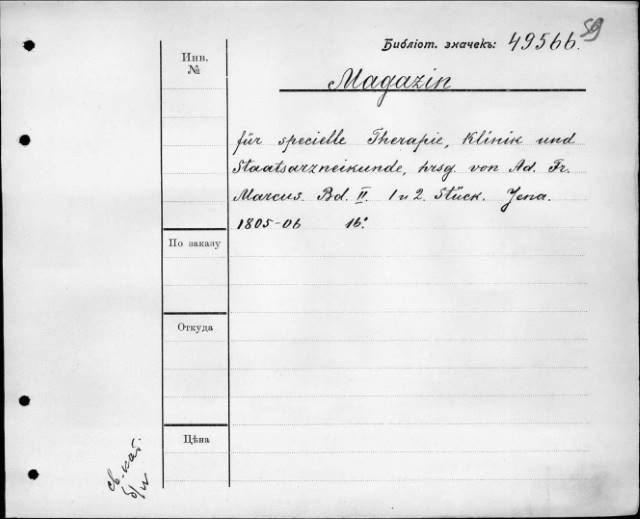 59
Библіот. значекъ: 49566.
Magazin
für specielle Therapie, Klinik und
Staatsarzneikunde, hrsg. von Ad. Fr.
Marcus. Bd. II. 1 u 2. Stück. Jena.
1805-06 16°.
Инв.
№
По заказу
Откуда
Цѣна
св. кат.
б/н